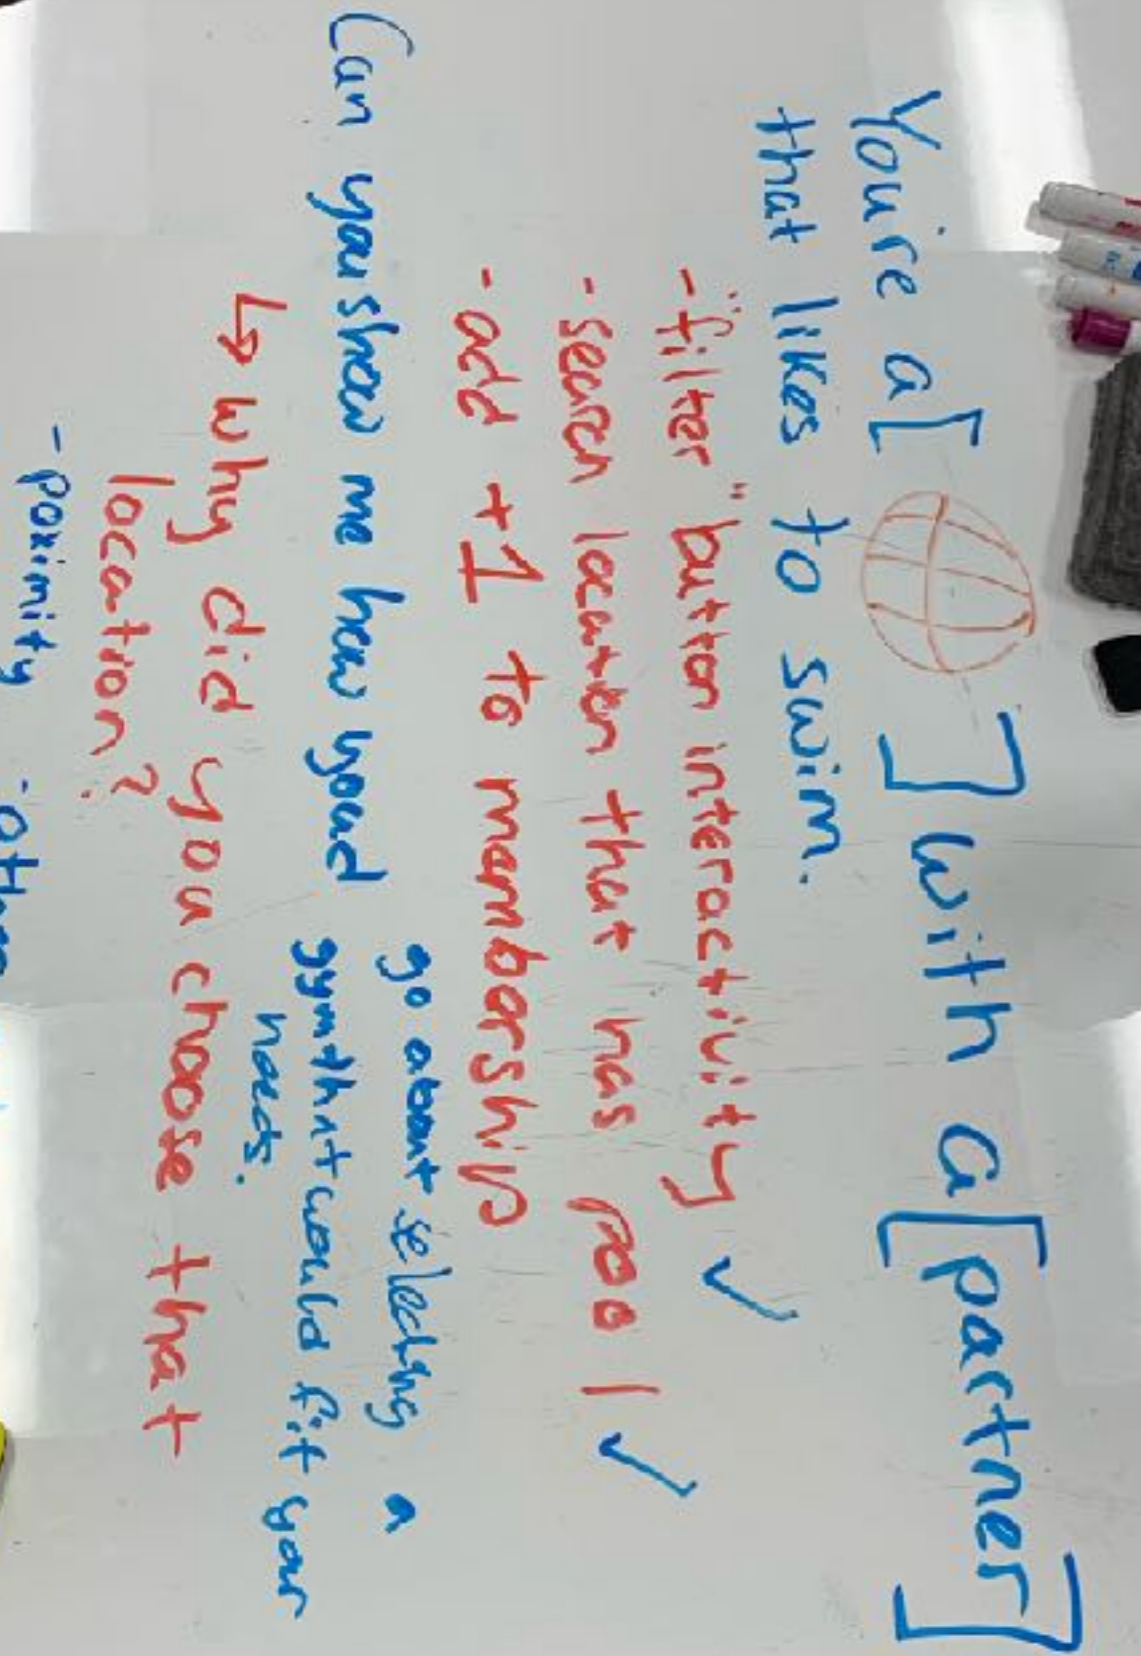 You're a [ ] with a [partner]
that likes to swim.
- "filter" button interactivity ✓
- search location that has pool ✓
- add +1 to membership
Can you show me how youd go about selecting a
gym that would fit your
needs.
↳ why did you choose that
location?
- poximity